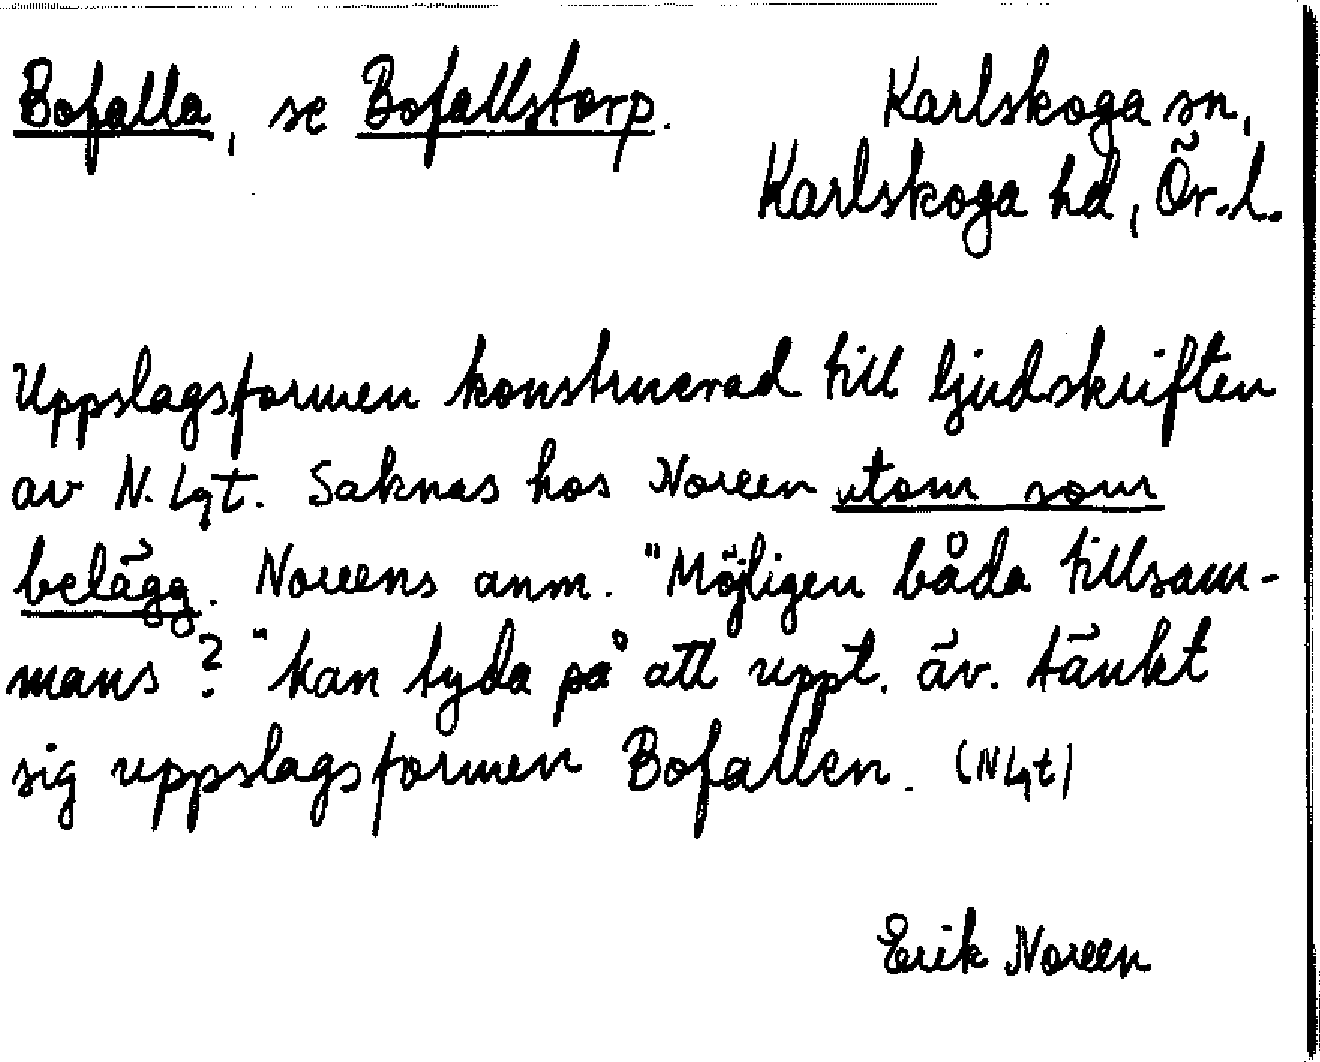 Bofalla, se Bofallstorp. Karlskoga sn,
Karlskoga hd, Ör.l.
Uppslagsformen konstruerad till ljudskriften
av N. Lgt. Saknas hos Noreen utom som
belägg. Noreens anm. "Möjligen båda tillsam-
mans?" kan tyda på att uppt. äv. tänkt
sig uppslagsformen Bofallen. (NLgt)
Erik Noreen